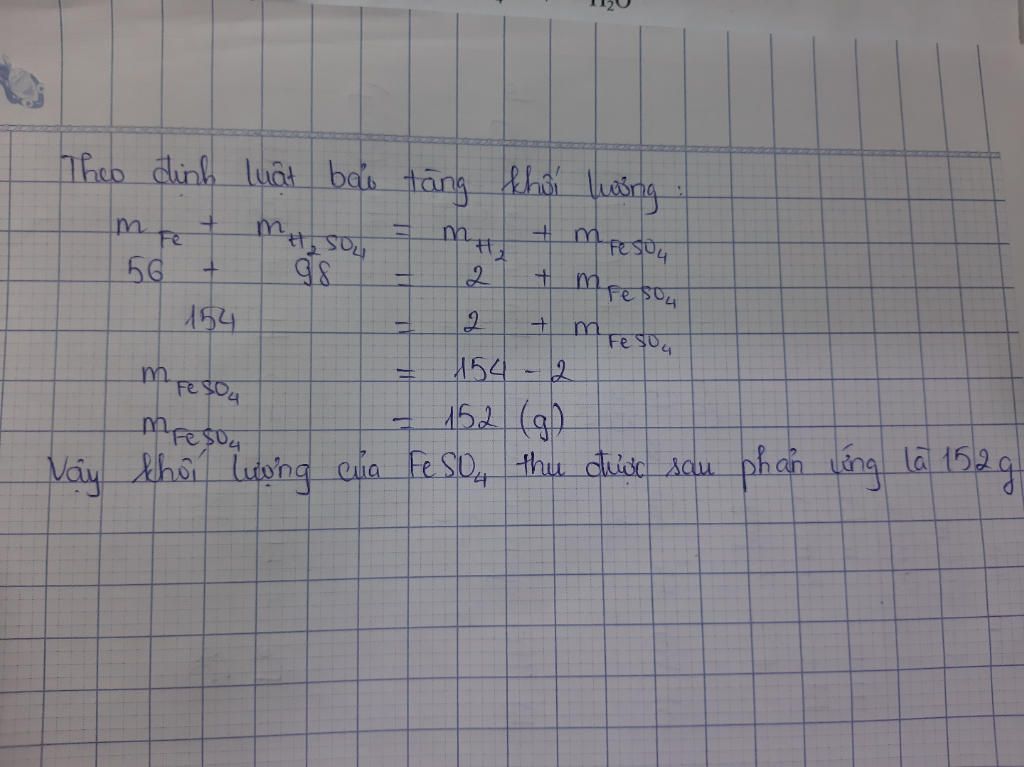 H₂O
Theo định luật bảo tàng khối lượng:
m Fe + m H₂SO₄ = m H₂ + m FeSO₄
56 + 98 = 2 + m FeSO₄
154 = 2 + m FeSO₄
m FeSO₄ = 154 - 2
m FeSO₄ = 152 (g)
Vậy khối lượng của FeSO₄ thu được sau phản ứng là 152g